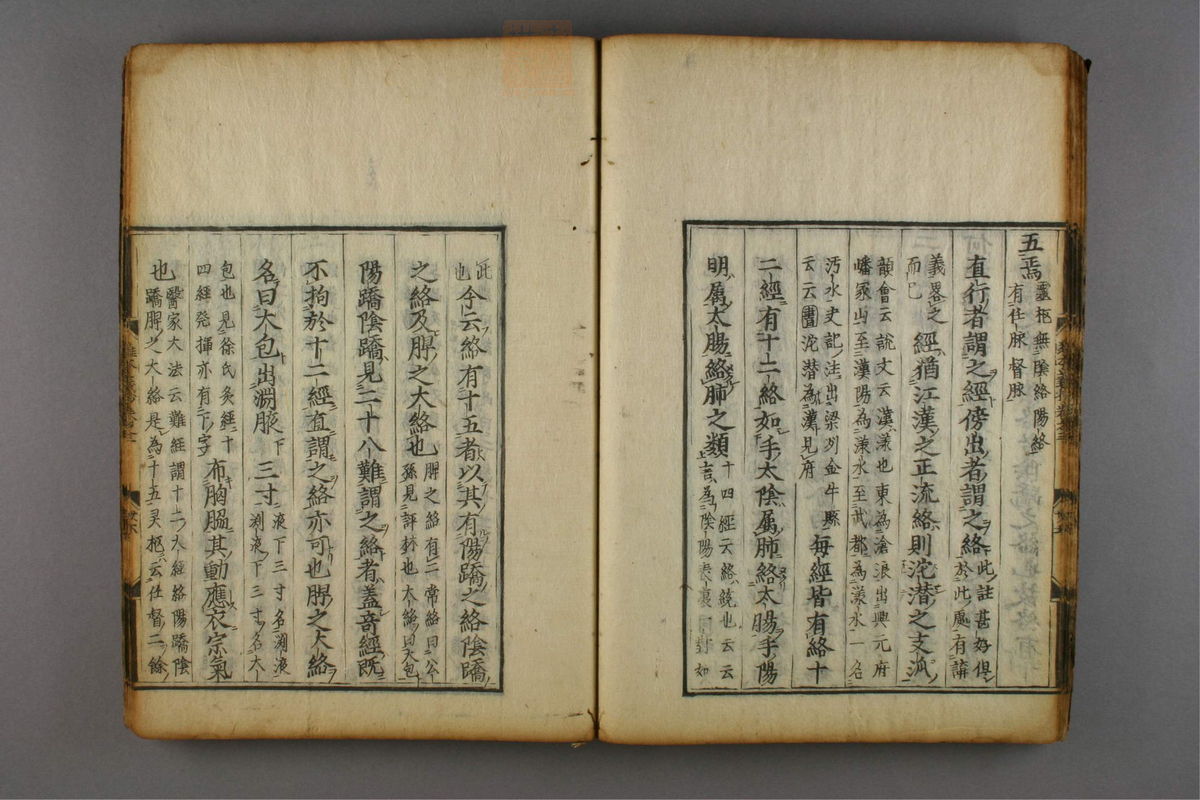 五焉靈枢無陰絡陽絡
有任脉督脉
直行者謂之經傍出者謂之絡此註甚好但
於此處有講
義畧之
而已
經猶江漢之正流絡則沱潜之支派
韻會云說文云漢漾也東為滄浪出興元府
嶓冢山至漢陽為漾水至武都為漾水一名
沔水史記注出梁列金牛縣
云云沱潜為漢見府
每經皆有絡十
二經有十二絡如手太陰属肺絡太腸手陽
明属太腸絡肺之類
十四經云絡繞也云云
言為陰陽表裏如
此
也
今云絡有十五者以其有陽蹻之絡陰蹻
之絡及脾之大絡也
脾之絡有二常絡曰公
孫見評林也大絡曰大包
陽蹻陰蹻見二十八難謂之絡者蓋奇經既
不拘於十二經直謂之絡亦可也脾之大絡
名曰大包出淵腋下三寸
液下三寸名淵液
淵液下三寸名大
包也見徐氏灸經十
四經発揮亦有下字
布胸脇其動應衣宗氣
也
醫家大法云難經謂十二大經絡陽蹻陰
蹻脾之大絡是為十五灵枢云任督二餘